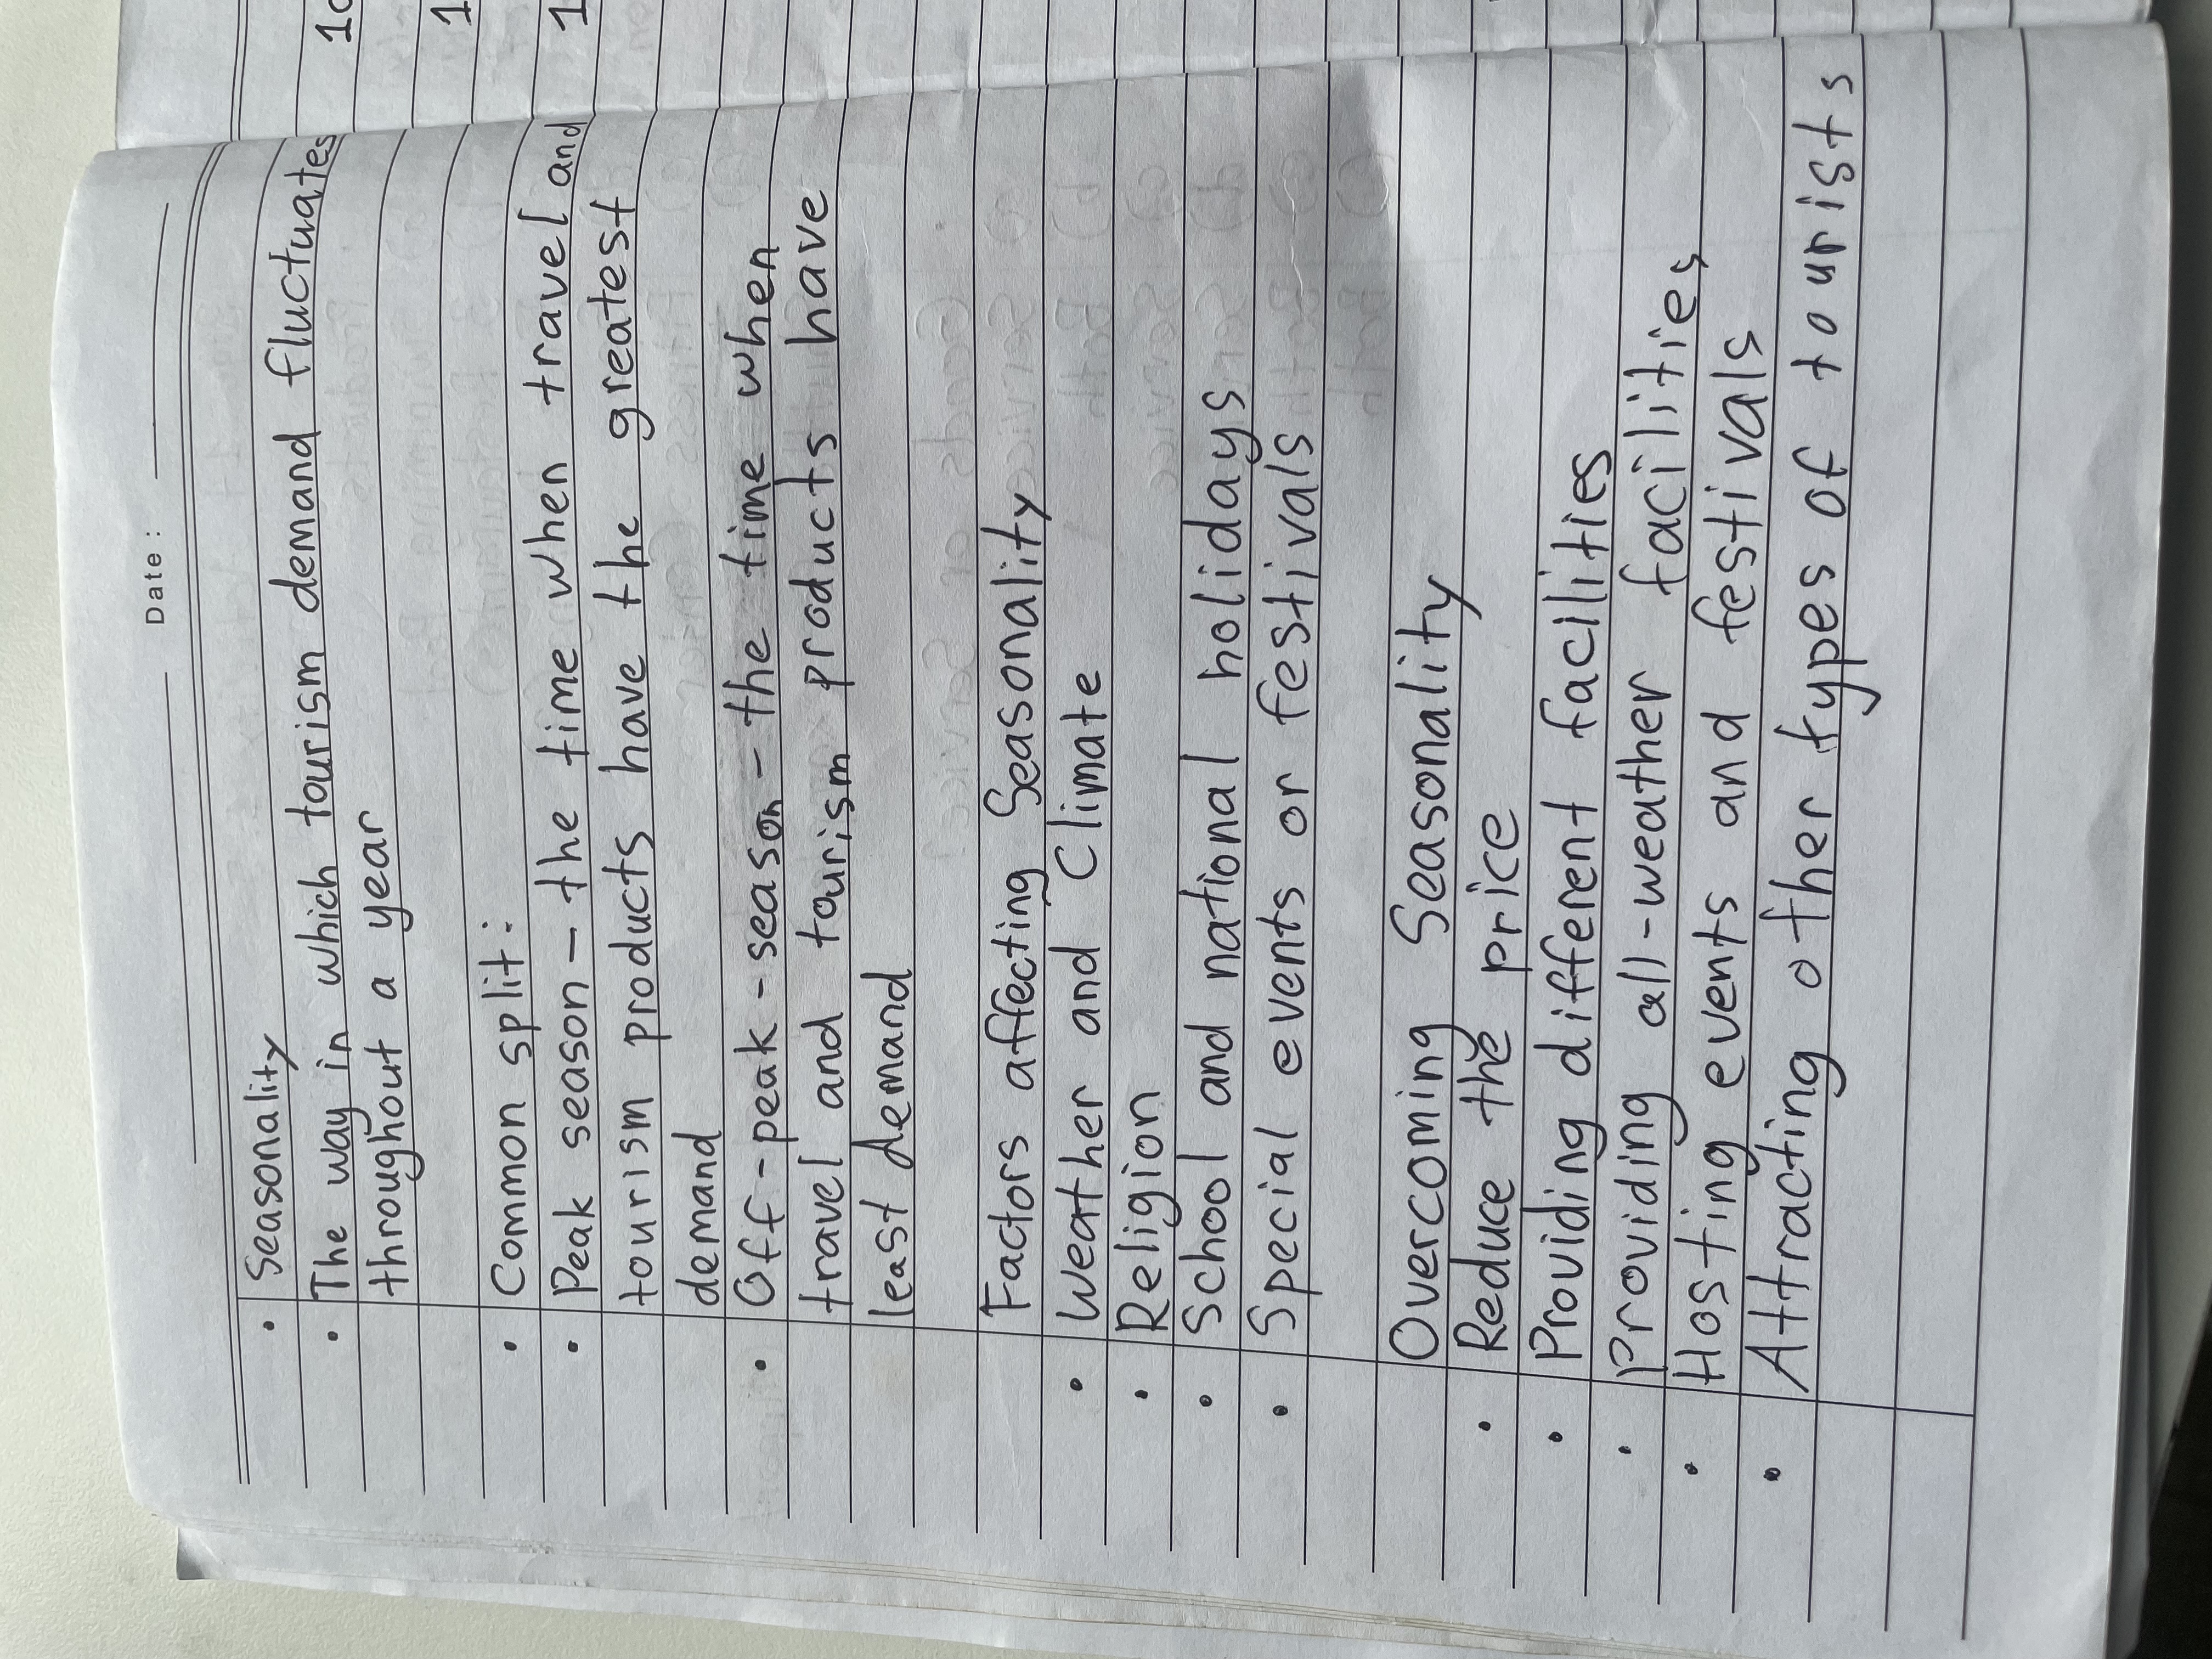 Date :
• Seasonality
• The way in which tourism demand fluctuates
throughout a year
• Common split:
• Peak season – the time when travel and
tourism products have the greatest
demand
• Off-peak-season – the time when
travel and tourism products have
least demand
Factors affecting Seasonality
• Weather and Climate
• Religion
• School and national holidays
• Special events or festivals
Overcoming Seasonality
• Reduce the price
• Providing different facilities
• Providing all-weather facilities
• Hosting events and festivals
• Attracting other types of tourists